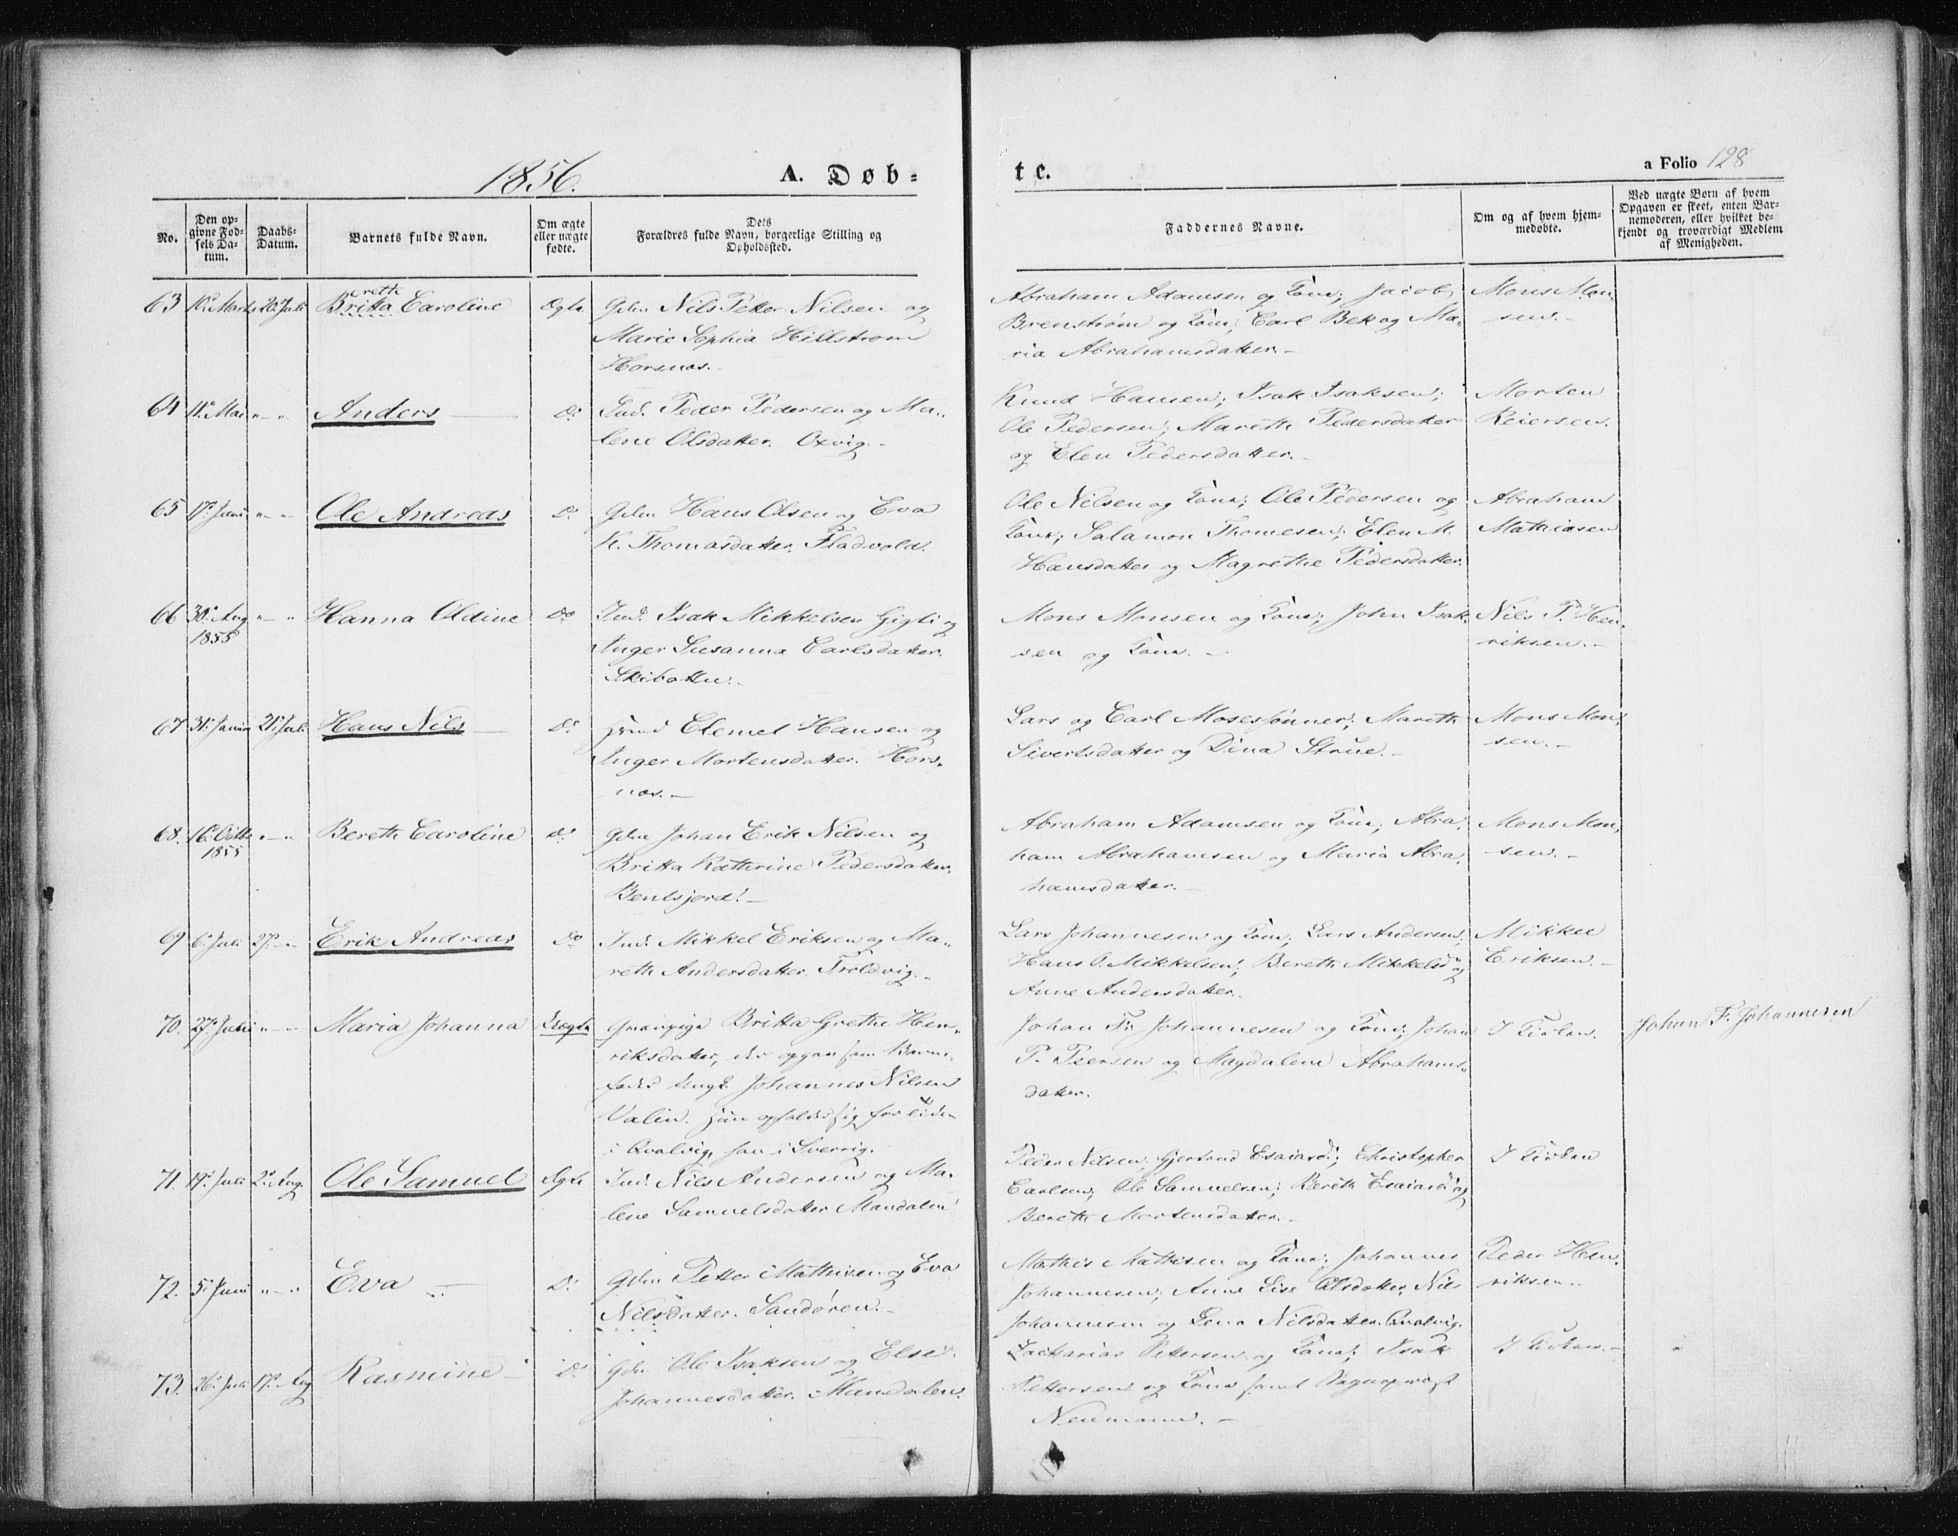 1856.
A. Døb=
te.
a Folio 128
No.
Den op-
givne Fød-
sels Da-
tum.
Daabs-
Datum.
Barnets fulde Navn.
Om ægte
eller uægte
fødte.
Dets
Forældres fulde Navn, borgerlige Stilling og
Opholdssted.
Faddernes Navne.
Om og af hvem hjem-
medøbte.
Ved uægte Børn af hvem
Opgaven er skeet, enten Bar-
nemoderen, eller hvilket be-
kjendt og troværdigt Medlem
af Menigheden.
63 10de Marts 20de Juli Britta Caroline Ægte. Gdm Nils Petter Nilsen og
erette
Marie Sophia Hillstrøm
Horsnæs.
Abraham Adamsen og Kone; Jacob
Brenstrøm og Kone; Carl Bek og Ma-
ria Abrahamsdatter.
Mons Mon-
sen.
64 11te Mai " " Anders Do Ind. Peder Pedersen og Ma-
lene Olsdatter. Oxvig.
Knud Hansen; Isak Isaksen;
Ole Pedersen; Marithe Pedersdatter
og Elen Pedersdatter.
Morten
Reiersen.
65 17de Juni " " Ole Andreas Do Gdm Hans Olsen og Eva
K. Thomasdatter. Fladvold.
Ole Nilsen og Kone; Ole Pedersen og
Kone; Salamon Thomesen; Elen M.
Hansdatter og Magrethe Pedersdatter.
Abraham
Mathiasen
66 30te Aug " " Hanna Oldine Do Ind. Isak Mikkelsen Gigli og
1855
Inger Susanna Carlsdatter.
Skibotten.
Mons Monsen og Kone; John Isak-
sen og Kone.
Nils P. Hen-
riksen.
67 31te Januar 21de Juli Hans Nils Do Ind Clemet Hansen og
Inger Mortensdatter. Hors-
næs.
Lars og Carl Mosessønner; Marethe
Sivertsdatter og Dina Strue.
Mons Mon-
sen.
68. 16de Octbr " " Berethe Caroline Do Gdm Johan Erik Nilsen og
1855
Britta Kathrine Pedersdatter.
Bentsjord.
Abraham Adamsen og Kone; Abra-
ham Abrahamsen og Maria Abra-
hamsdatter.
Mons Mon-
sen.
69 6te Juli 27de " Erik Andreas Do Ind. Mikkel Eriksen og Ma-
rethe Andersdatter. Troldvig.
Lars Johannesen og Kone; Lars Andersen;
Hans P. Mikkelsen; Berethe Mikkelsd. og
Anne Andersdatter.
Mikkel
Eriksen.
70. 27de Juli " " Maria Johanna Uægte Gmanspige Britta Grethe Hen-
riksdatter, der opgav som Barne-
fader Ungk. Johannes Nilsen
Valin. Hun opholder sig for Tiden
i Qvalvig, han i Sverrig.
Johan Fr. Johannesen og Kone; Johan
P. Peersen og Magdalene Abrahams-
datter.
I Kirken.
Johan F. Johannesen
71. 14de Juli 2de Aug. Ole Samuel Ægte Ind. Nils Andersen og Ma-
lene Samuelsdatter Mandalen
Peder Nilsen, Gjertrud Esaiasd; Christopher
Carlsen; Ole Samuelsen; Berith Esaiasd. og
Berethe Mortensdatter.
I Kirken
72. 5te Juni " " Eva Do Gdm Petter Mathisen og Eva
Nilsdatter. Sandøren.
Mathis Mathisen og Kone; Johannes
Johannesen; Anne Lise Olsdatter, Nils
Johannesen og Lena Nilsdatter. Qvalvig.
Peder Hen-
riksen.
73. 26de Juli 17de Aug Rasmine Do Gdm Ole Isaksen og Else
Johannesdatter. Mandalen.
Zacharias Pettersen og Kone; Isak
Pettersen og Kone samt Sogneprest
Neumann.
I Kirken.